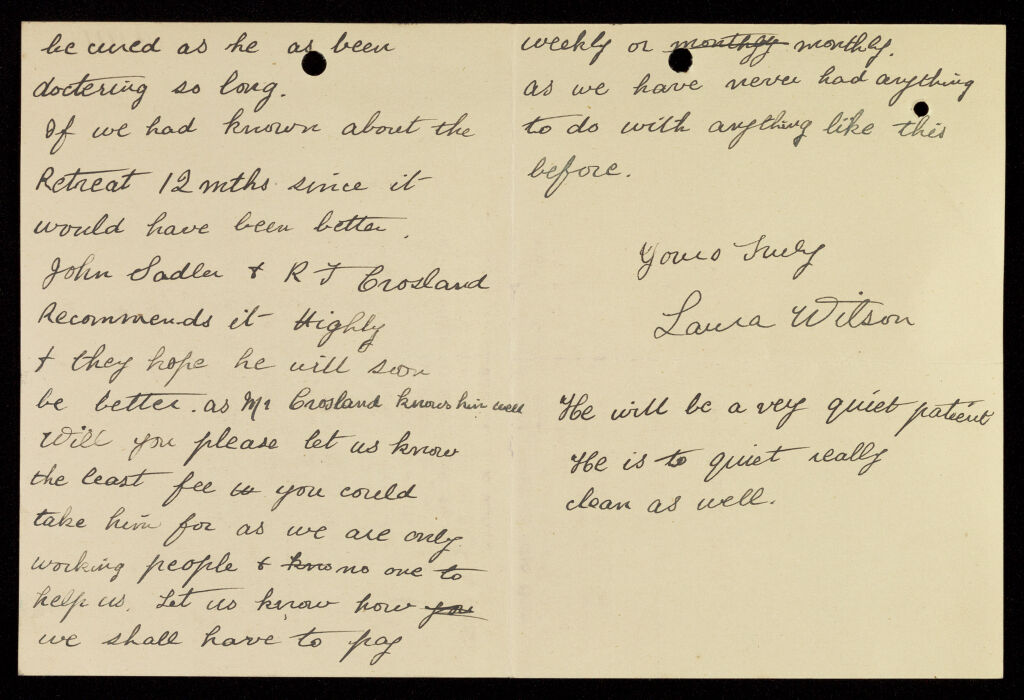 be cured as he as been
doctering so long.
If we had known about the
Retreat 12 mths since it
would have been better.
John Sadler & R T Crosland
Recommends it Highly
& they hope he will soon
be better. as Mr Crosland knows him well
Will you please let us know
the least fee you could
take him for as we are only
working people & kno no one to
help us. Let us know how you
we shall have to pay
weekly or monthly monthly.
as we have never had anything
to do with anything like this
before.
Yours Truly
Laura Wilson
He will be a very quiet patient
He is to quiet really
clean as well.